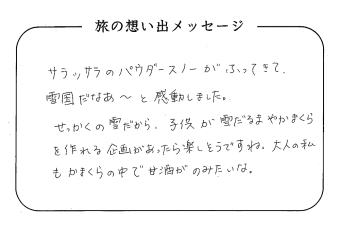 旅の想い出メッセージ
サラッサラのパウダースノーがふってきて、
雪国だなあ〜と感動しました。
せっかくの雪だから、子供が雪だるまやかまくら
を作れる企画があったら楽しそうですね。大人の私
もかまくらの中で甘酒がのみたいな。